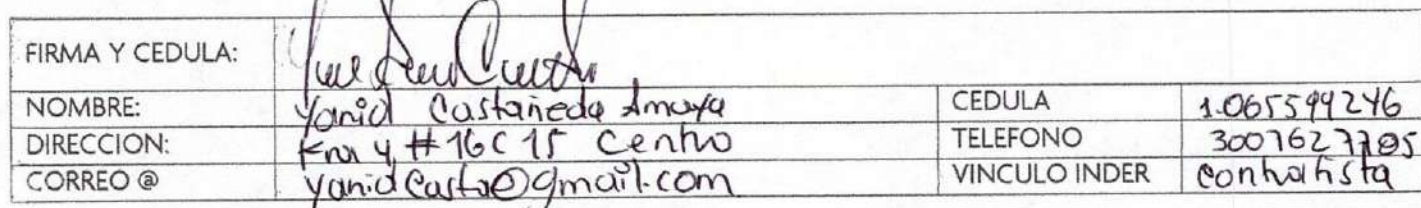 FIRMA Y CEDULA:
NOMBRE: Yanid Castañeda Amaya CEDULA 1.065599246
DIRECCION: Kra 4 #16C 15 Centro TELEFONO 3007627705
CORREO @ yanidcasta@gmail.com VINCULO INDER contratista